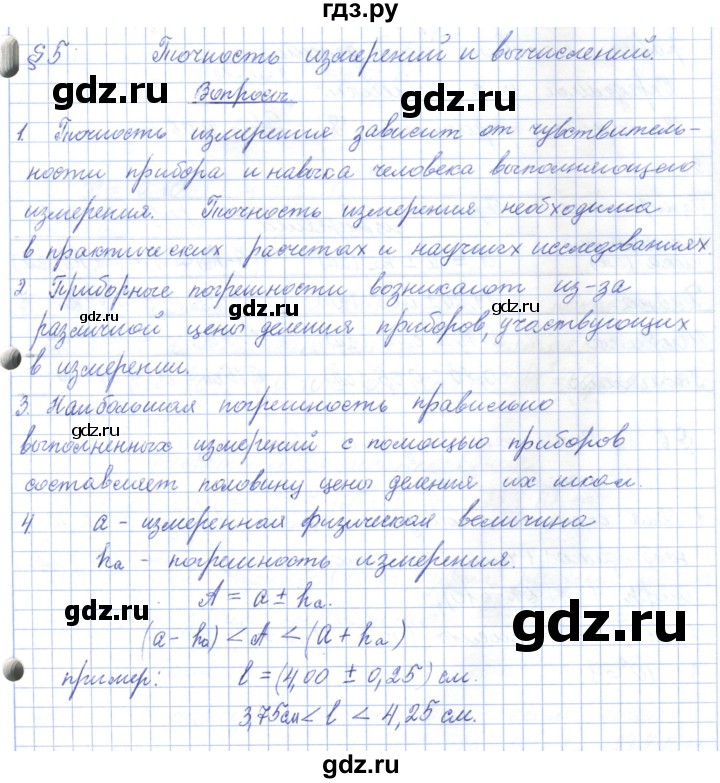 гдз.ру
§5 Точность измерений и вычислений.
Вопросы
1. Точность измерения зависит от чувствитель-
ности прибора и навыка человека выполняющего
измерения. Точность измерения необходима
в практических расчетах и научных исследованиях.
2 Приборные погрешности возникают из-за
различной цены деления приборов, участвующих
в измерении.
3. Наибольшая погрешность правильно
выполненных измерений с помощью приборов
составляет половину цены деления их шкал.
4. a - измеренная физическая величина
hа - погрешность измерения.
A = a ± hа.
(a - hа) < A < (a + hа)
пример: l = (4,00 ± 0,25) см.
3,75см < l < 4,25 см.
gdz.ru
gdz.ru
gdz.ru
gdz.ru
gdz.ru
gdz.ru
gdz.ru
gdz.ru
gdz.ru
gdz.ru
gdz.ru
gdz.ru